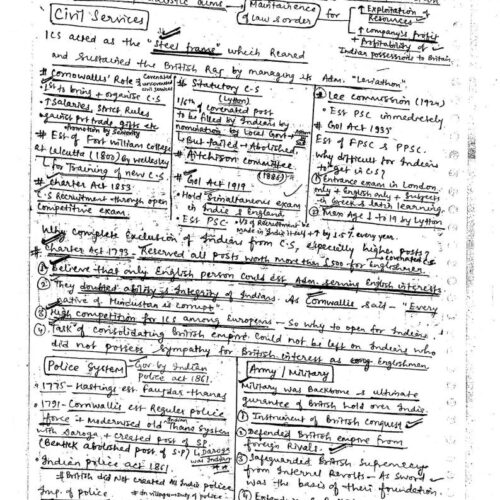 aims
Maintainence of law & order
for
↑ Exploitation of Resources
↑ Company's Profit + Profitability of Indian possessions to Britain.
Civil Services
ICS acted as the "Steel frame" which Reared
and Sustained the British Raj by managing its Adm. "Leviathon"
# Cornowallis' Role of Covenated
civil services
• 1st to bring & organise C.S
• ↑ Salaries, Strict Rules
• against pvt trade, gifts etc
• Promotion by Seniority
# Est of Fort William College
at Calcutta (1800) by Wellesley
for Training of new C.S
# Charter Act 1853
C.S Recruitment through open
Competitive exam.
# Statutory C.S
(Lytton)
1/6th of covenated post
to be filled by Indians by
nomination by Local Govt
• But failed → Abolished
# Aitchison Committee
(1886)
# GoI Act 1919
• Hold Simultaneous exam
in India & England
• Est PSC
# Lee Commission (1924)
• Est PSC immediately
# GoI Act 1935
Est of FPSC & PPSC.
Why difficult for Indians
to get in C.S?
① Entrance exam in London
+ English only + Subjects
in Greek & Latin learning.
② Max Age ↓ to 19 by Lytton
Why complete Exclusion of Indians from C.S, especially higher posts?
# Charter Act 1793 - Reserved all posts worth more than £500 for Englishmen.
① Believe that only English person could est Adm. serving English interests
② They doubted ability & integrity of Indians. As Cornwallis said - "Every
native of Hindustan is corrupt".
③ High Competition for ICS among Europeans - So why to open for Indians
④ Task of consolidating British empire could not be left on Indians who
did not possess Sympathy for British interest as Englishmen.
Police System
Gov by Indian
police act 1861.
• 1775 - Hastings est Faujdar thanas
• 1791 - Cornwallis est Regular police
force & modernised old Indian Thana System
with Daroga + created post of SP.
(Bentick abolished post of S.P)
Daroga
was Indian
• Indian police Act 1861.
# British did not created All India police
Imp. of police
Army / Military
Military was Backbone & ultimate
gurantee of British hold over India.
① Instrument of British Conquest
② Defended British empire from
foreign Rivals.
③ Safeguarded British Supremacy
from Internal Revolts - As Sword
was the basis of their foundation.
④